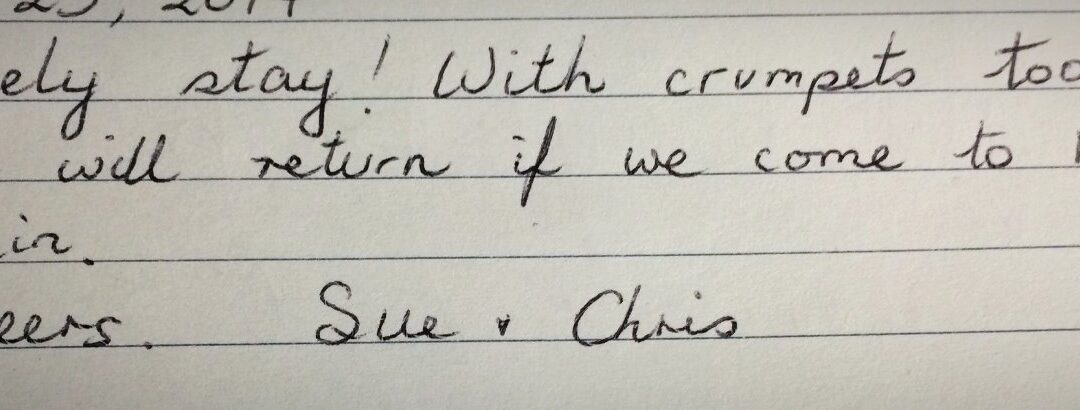 ely stay! With crumpets too
will return if we come to
in.
eers. Sue & Chris